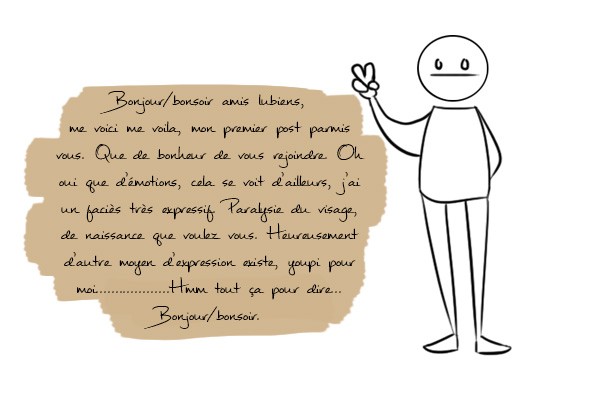 Bonjour/bonsoir amis lubiens,
me voici me voila, mon premier post parmis
vous. Que de bonheur de vous rejoindre. Oh
oui que d'émotions, cela se voit d'ailleurs, j'ai
un faciès très expressif. Paralysie du visage,
de naissance que voulez vous. Heureusement
d'autre moyen d'expression existe, youpi pour
moi...................Hmm tout ça pour dire...
Bonjour/bonsoir.